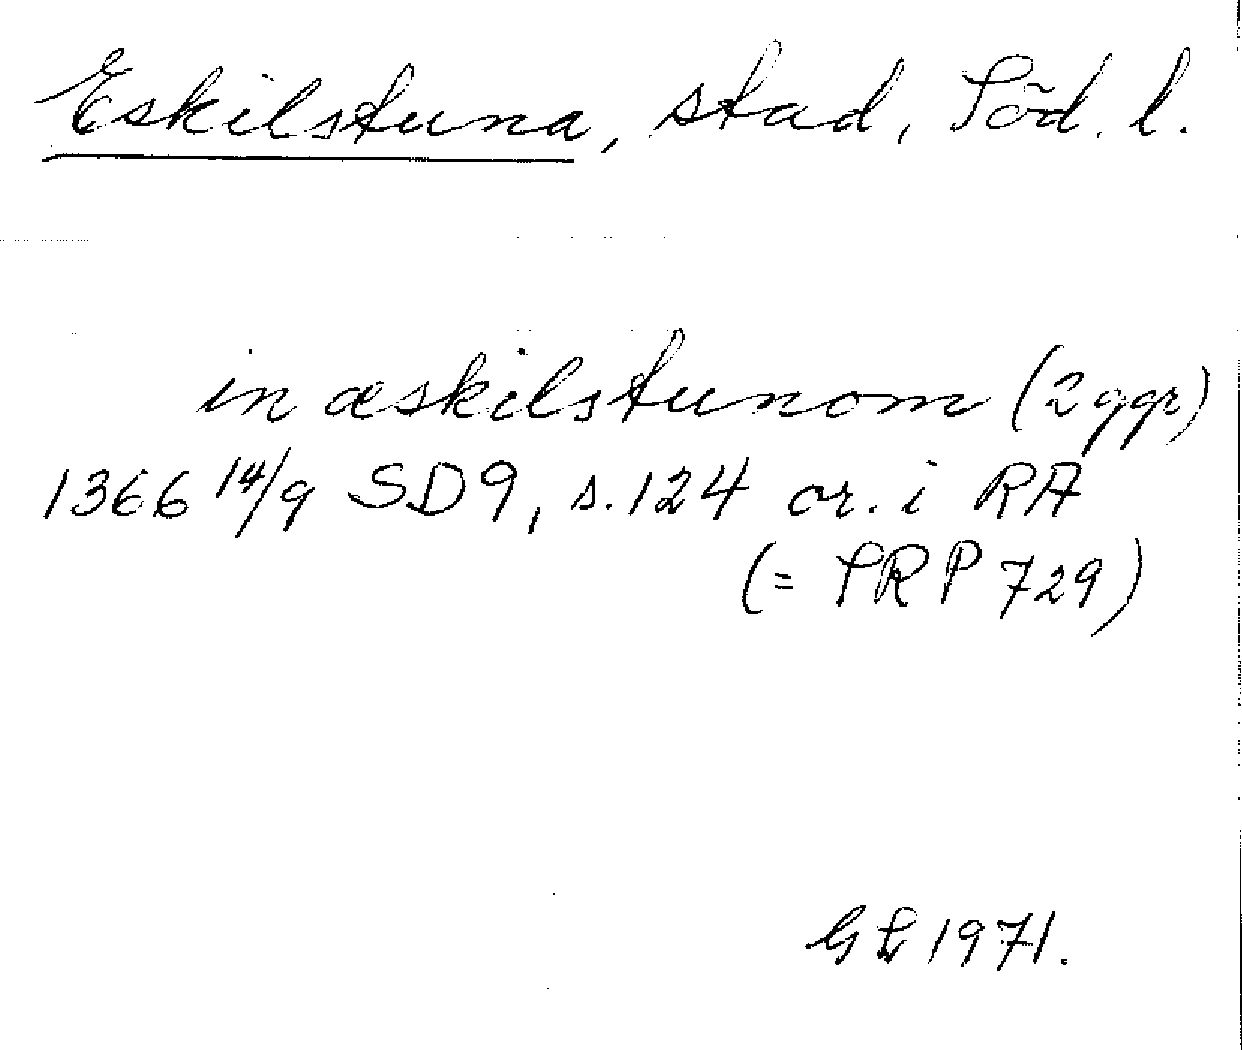 Eskilstuna, stad, Söd. l.
in æskilstunom (2 ggr)
1366 14/9 SD 9, s. 124 or. i RA
(= SRP 729)
GL 1971.